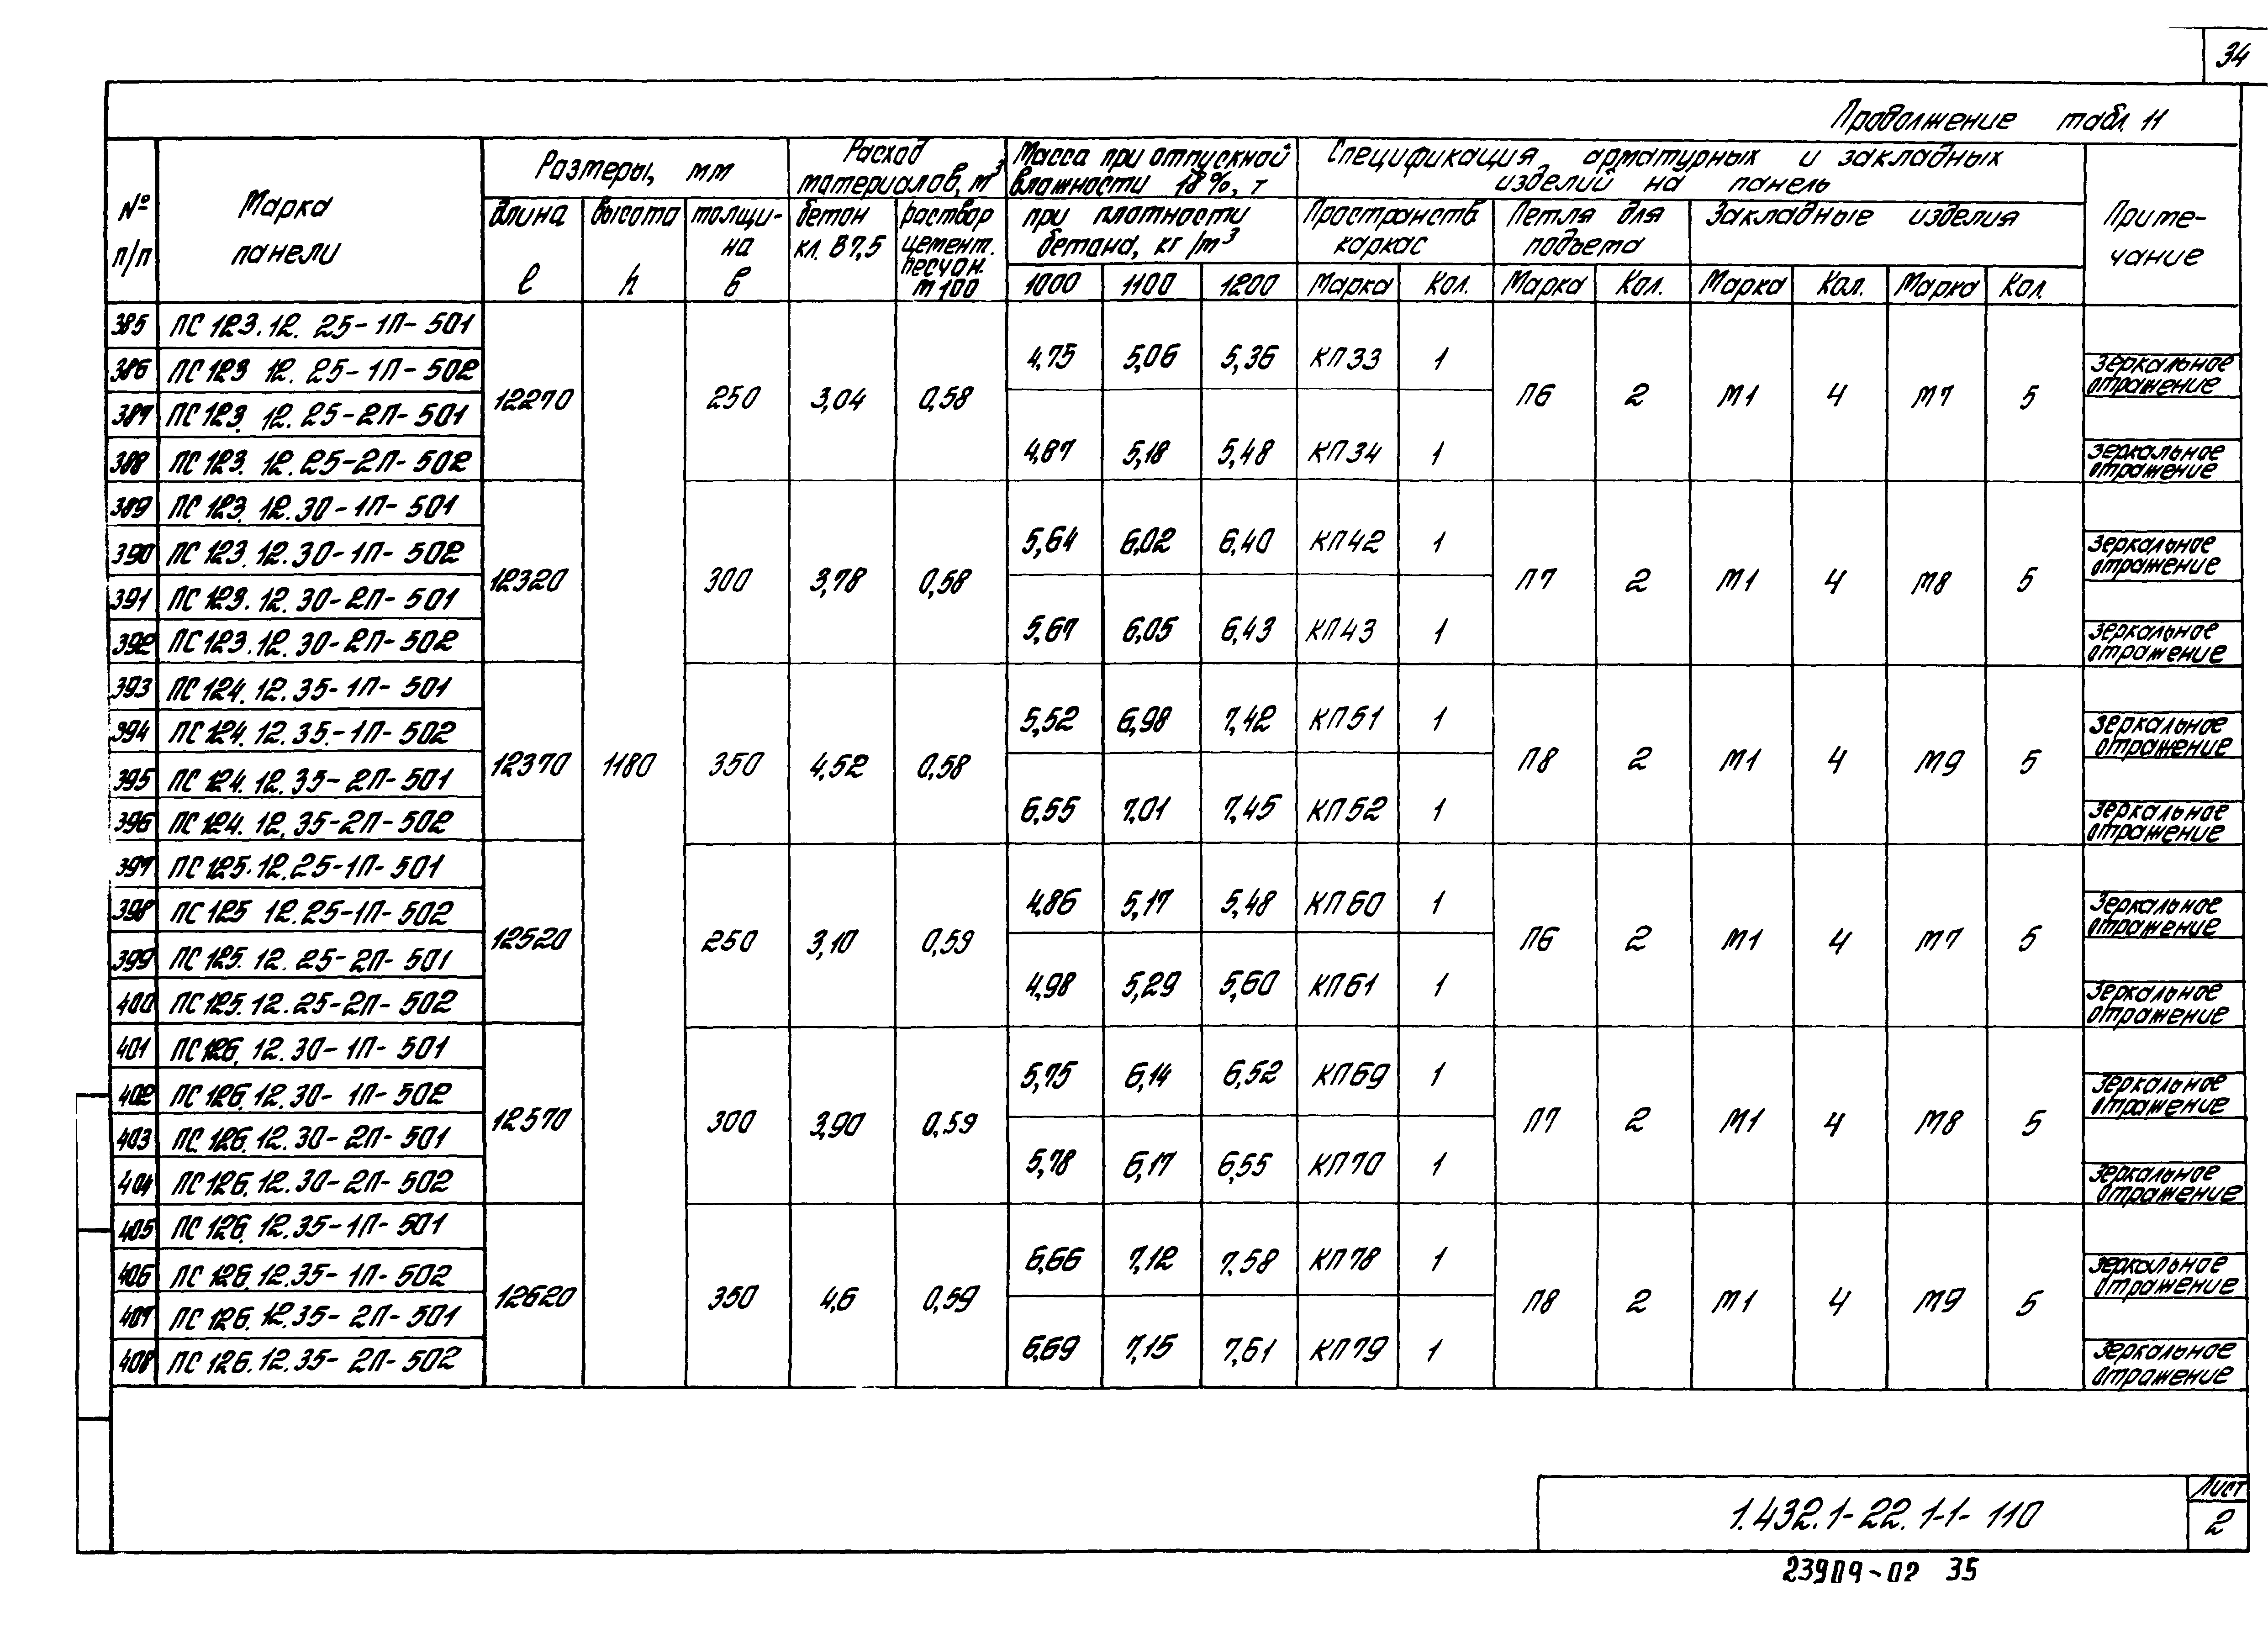 34
Продолжение табл. 11
№ п/п
Марка панели
Размеры, мм
Расход материалов, м³
Масса при отпускной влажности 18%, т
Спецификация арматурных и закладных изделий на панель
Приме-чание
длина l
высота h
толщи-на b
бетон кл. В 7,5
раствор цемент. песчан. m 100
при плотности бетона, кг/м³
Пространств каркас
Петля для подъема
Закладные изделия
1000 1100 1200 Марка Кол. Марка Кол. Марка Кол. Марка Кол.
385 ПС 123.12. 25-1П-501
386 ПС 123 12. 25-1П-502 зеркальное отражение
4,75 5,06 5,36 КП33 1
12270 250 3,04 0,58 П6 2 М1 4 М7 5
387 ПС 123. 12. 25-2П-501
388 ПС 123. 12. 25-2П-502 зеркальное отражение
4,87 5,18 5,48 КП34 1
389 ПС 123. 12.30-1П-501
390 ПС 123. 12.30-1П-502 зеркальное отражение
5,64 6,02 6,40 КП42 1
12320 300 3,78 0,58 П7 2 М1 4 М8 5
391 ПС 123. 12. 30-2П-501
392 ПС 123. 12. 30-2П-502 зеркальное отражение
5,67 6,05 6,43 КП43 1
393 ПС 124. 12. 35-1П-501
394 ПС 124. 12. 35-1П-502 зеркальное отражение
5,52 6,98 7,42 КП51 1
12370 1180 350 4,52 0,58 П8 2 М1 4 М9 5
395 ПС 124. 12. 35-2П-501
396 ПС 124. 12. 35-2П-502 зеркальное отражение
6,55 7,01 7,45 КП52 1
397 ПС 125. 12. 25-1П-501
398 ПС 125 12. 25-1П-502 зеркальное отражение
4,86 5,17 5,48 КП60 1
12520 250 3,10 0,59 П6 2 М1 4 М7 5
399 ПС 125. 12. 25-2П-501
400 ПС 125. 12. 25-2П-502 зеркальное отражение
4,98 5,29 5,60 КП61 1
401 ПС 126. 12. 30-1П-501
402 ПС 126. 12. 30-1П-502 зеркальное отражение
5,75 6,14 6,52 КП69 1
12570 300 3,90 0,59 П7 2 М1 4 М8 5
403 ПС. 126. 12. 30-2П-501
404 ПС 126. 12. 30-2П-502 зеркальное отражение
5,78 6,17 6,55 КП70 1
405 ПС 126. 12. 35-1П-501
406 ПС 126. 12. 35-1П-502 зеркальное отражение
6,66 7,12 7,58 КП78 1
12620 350 4,6 0,59 П8 2 М1 4 М9 5
407 ПС 126. 12. 35-2П-501
408 ПС 126. 12. 35-2П-502 зеркальное отражение
6,69 7,15 7,61 КП79 1
1.432.1-22. 1-1-110
Лист
2
23909-02 35